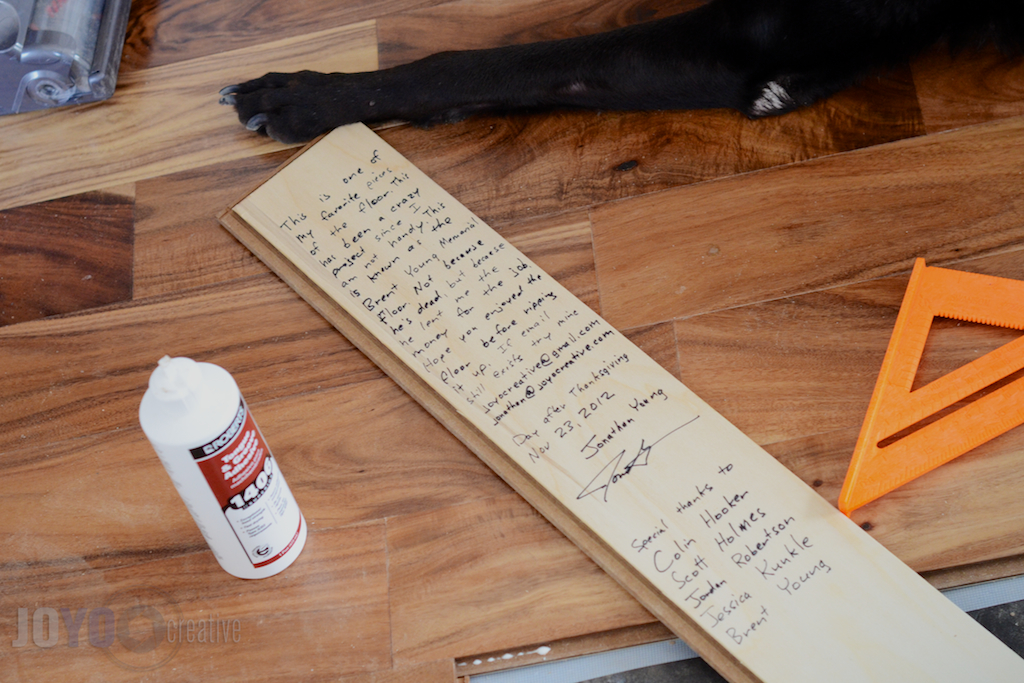 This is one of
my favorite pieces
of the floor. This
has been a crazy
project since I
am not handy. This
is known as the
Brent Young Memorial
floor. Not because
he's dead but because
he lent me the
money for the job
Hope you enjoyed the
floor before ripping
it up. If email
still exists try mine
joyocreative@gmail.com
jonathan@joyocreative.com
Day after Thanksgiving
Nov 23, 2012
Jonathan Young
Special thanks to
Colin Hooker
Scott Holmes
Jordan Robertson
Jessica Kunkle
Brent Young
ROBERTS
Tongue
& Groove
Adhesive
1406
JOYO creative